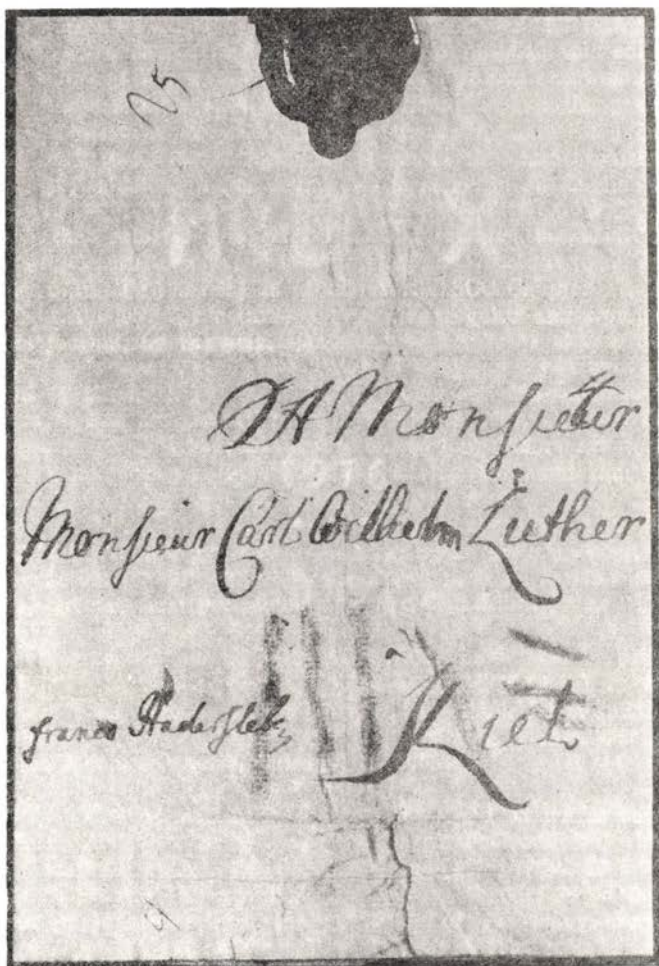 25
A Monsieur
Monsieur Carl Wilhelm Luther
franco Hadersleb
Kiel